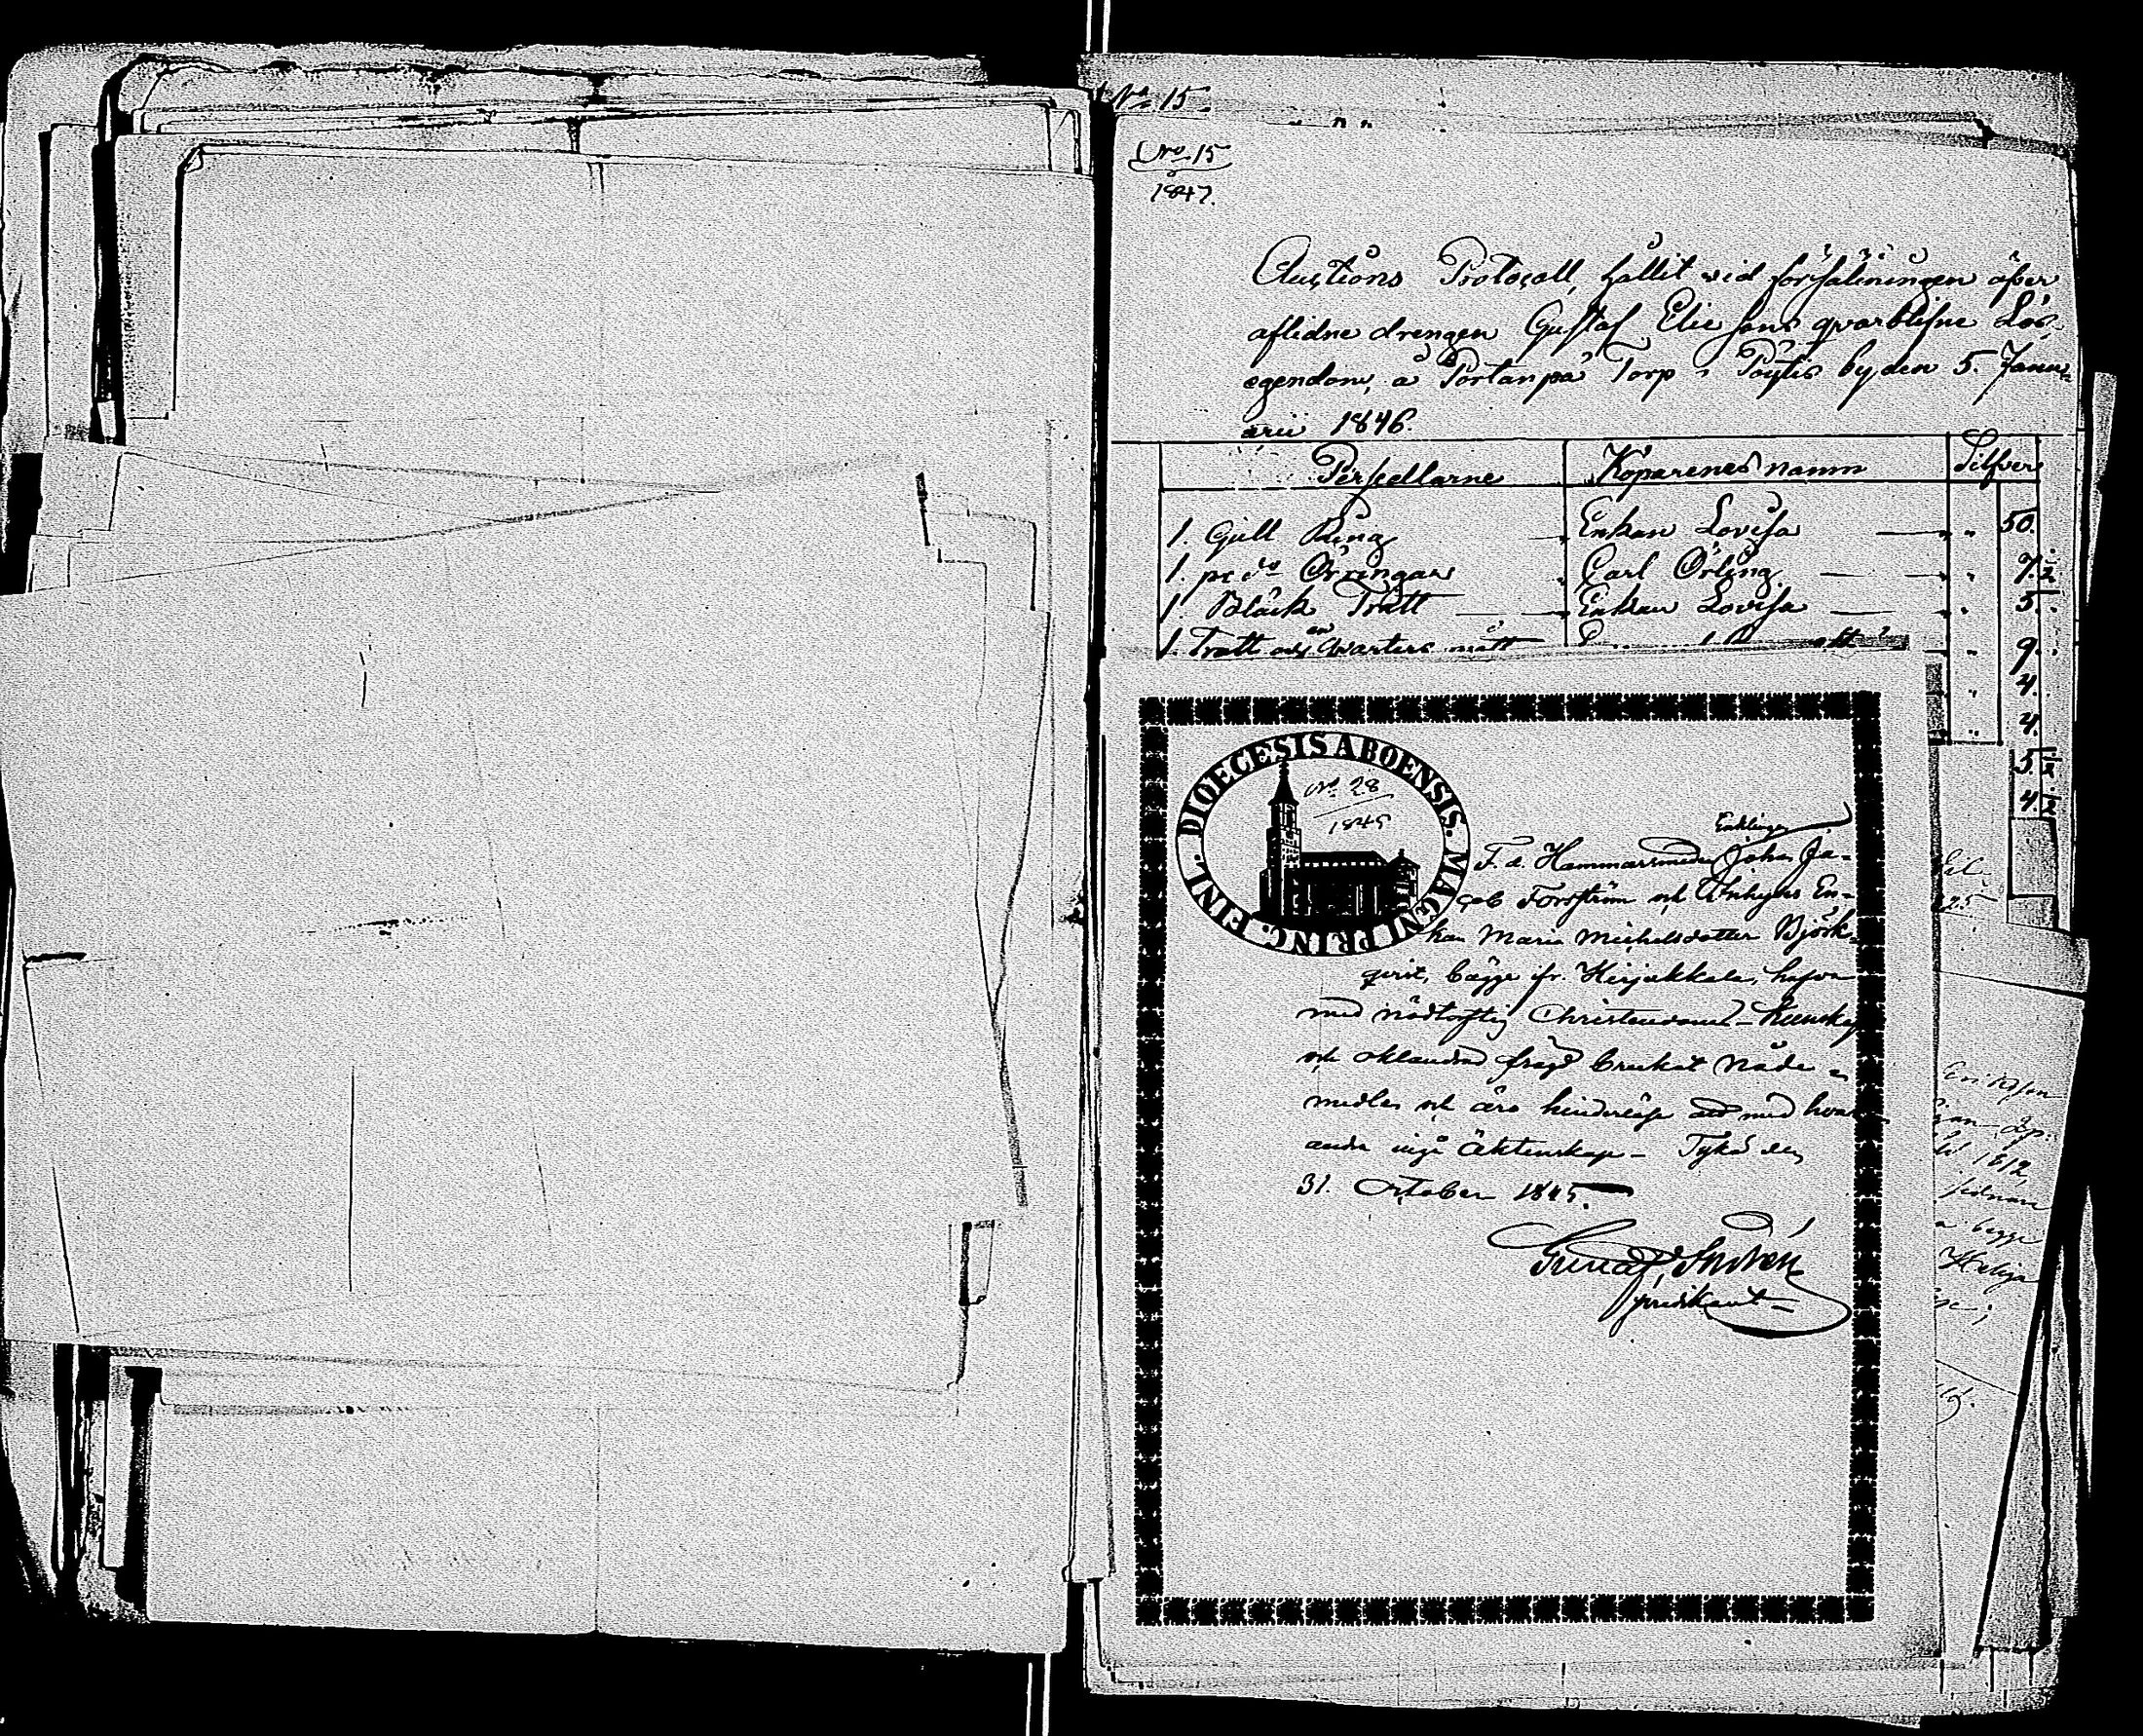 No. 15.
No. 15
1847.
Auctions Protocoll, hållit vid försäliningen äfver
aflidne drengen Gustaf Elie sons qvarblifne Lös-
egendom, å Portanpä Torp i Pöytis by den 5. Janu-
arii 1846.
Persedlarne Köparenes namn Silfver
1. Gull Ring Enkan Lovisa " 50.
1. pr do Örringar Carl Örling " 7. ½
1. Bläck Tratt Enkan Lovisa " 5.
1. Tratt och en qvarters mått " 9.
" 4.
" 4.
5. ½
4. ½
DIOECESIS ABOENSIS. MAGNI PRINC. FINL.
No. 28
1845
Enklingen
F. d. Hammarsmeden Johan Ja-
cob Forsström och Enkan
Maria Michelsdotter Björk-
qvist, bägge fr. Kirjakkala, hafva
med nödtorftig Christendoms-kunskap
och oklandrad frägd brukat Nåde-
medlen och äro hinderlöse att med hvar-
andra ingå Äktenskap. Tykö den
31. October 1845.
Gustaf
predikant
Eriksson
1812,
bägge